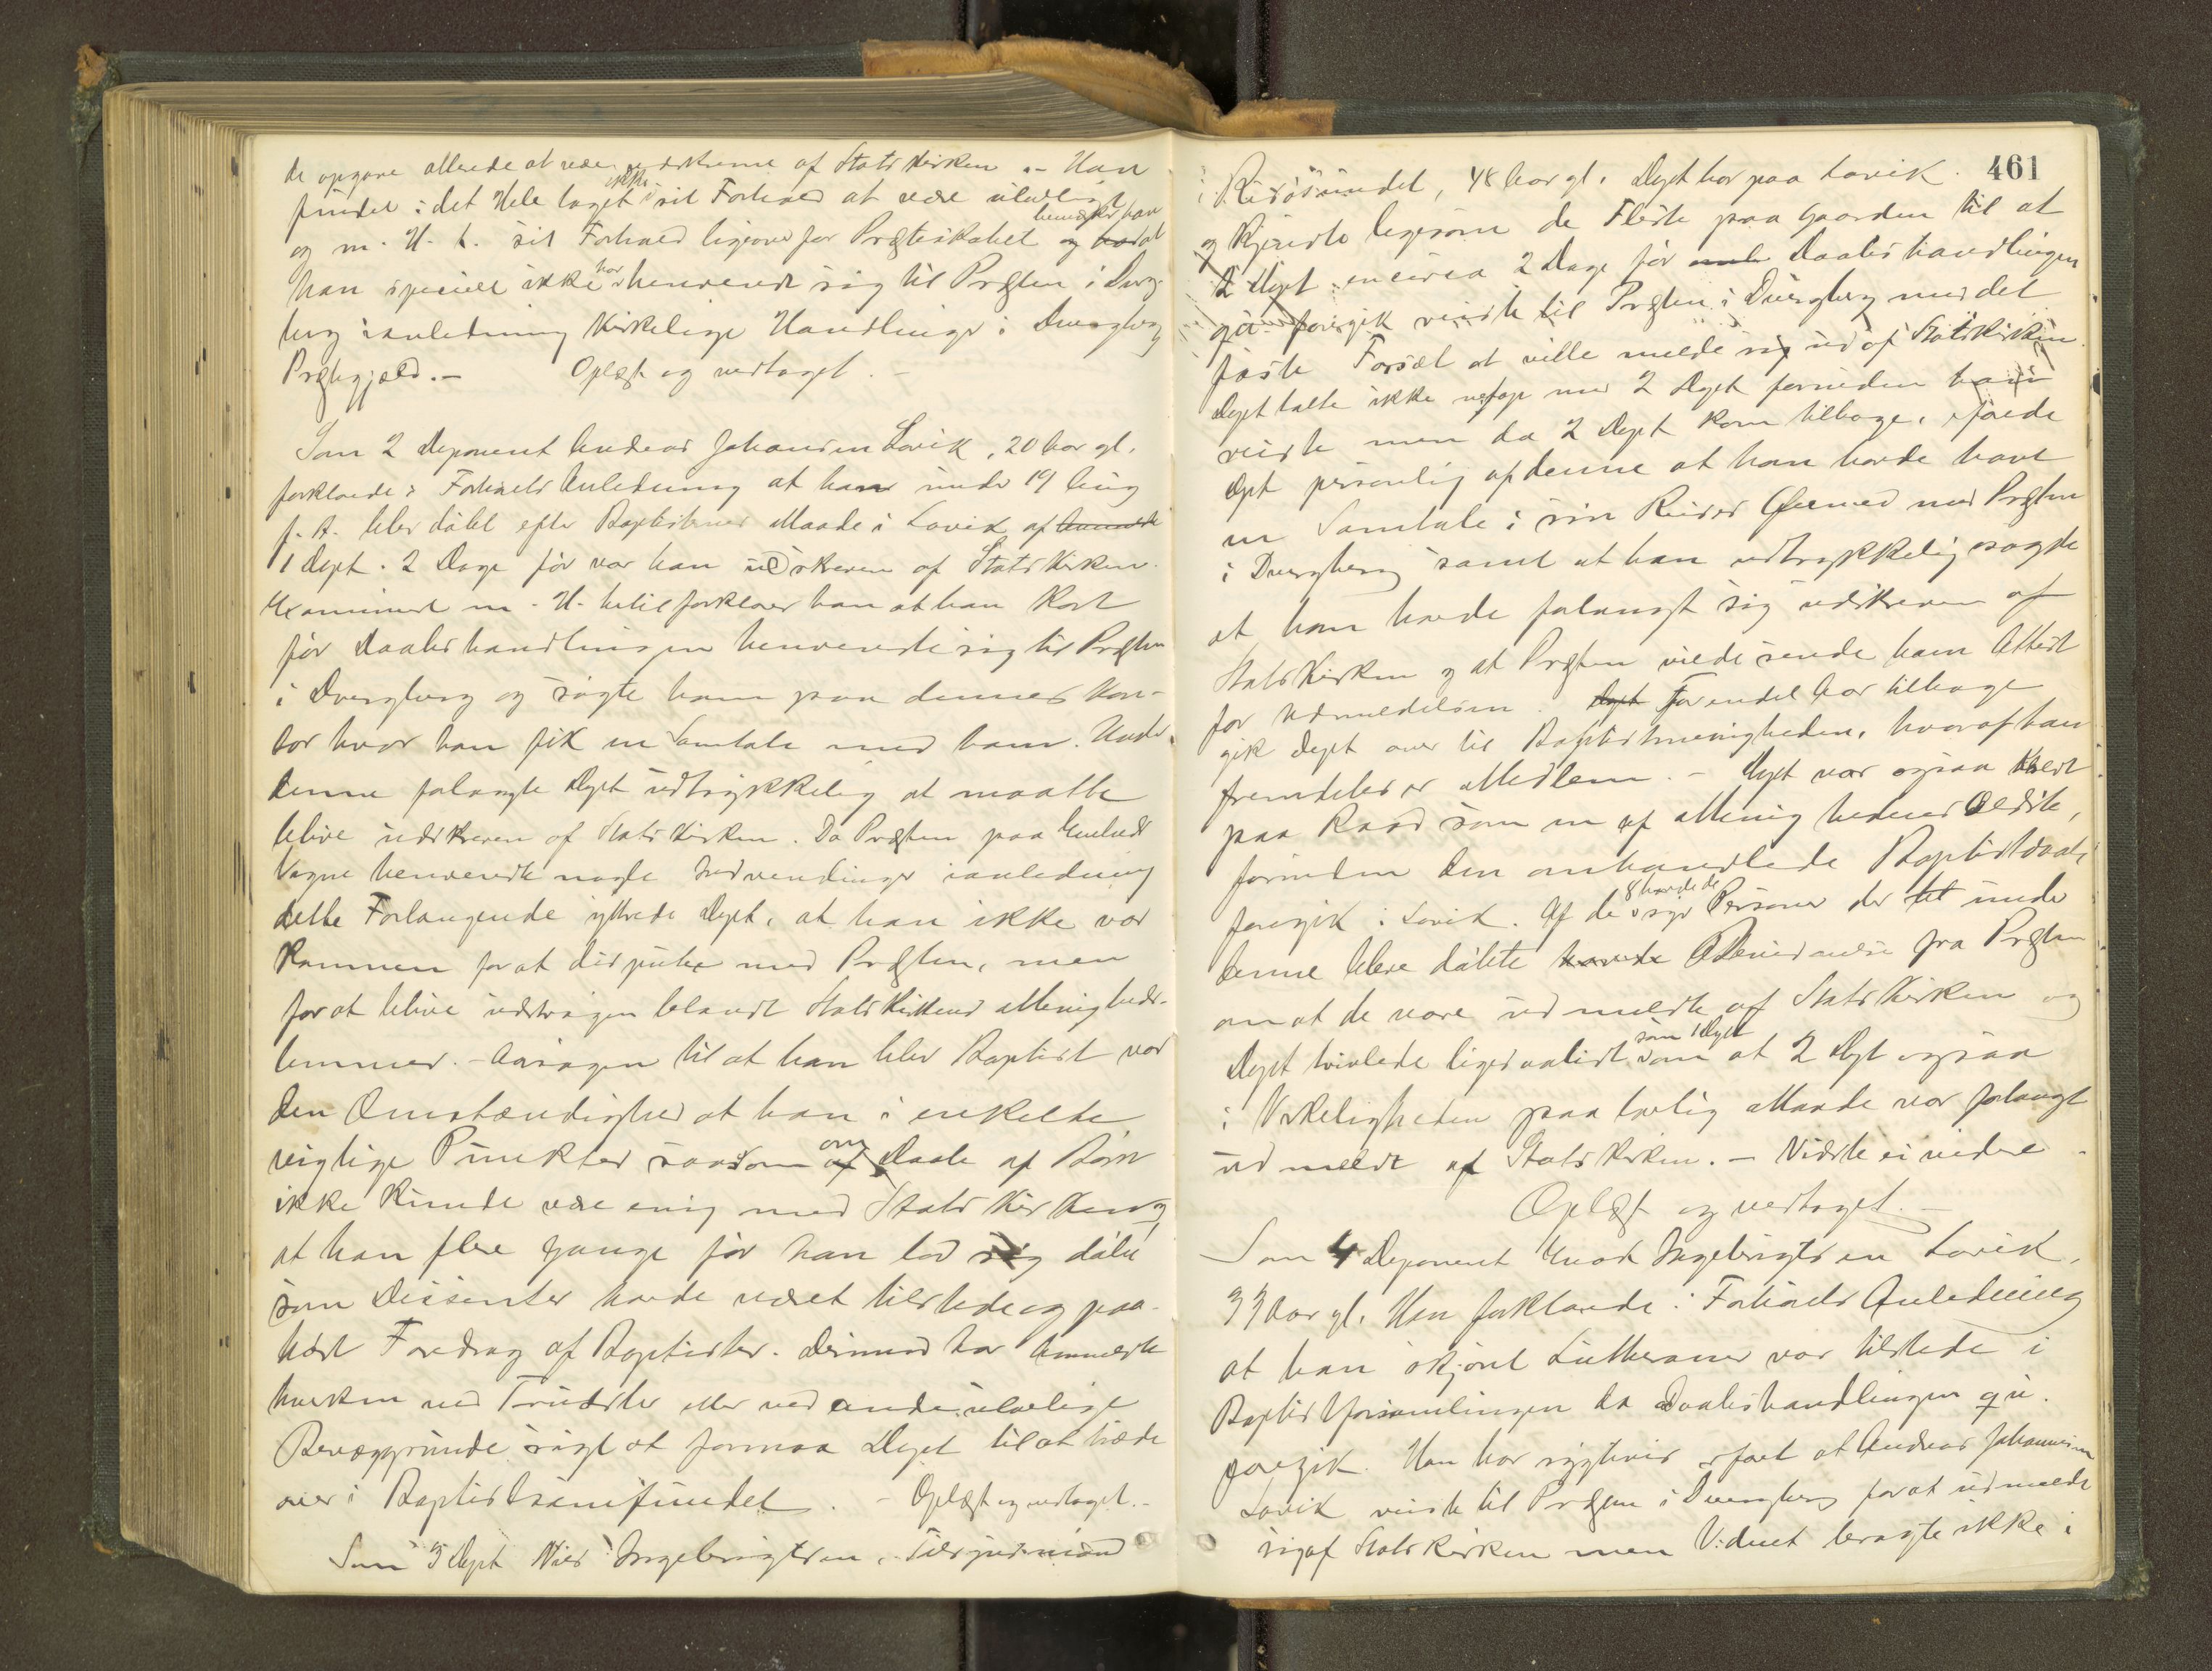 de opgave allerede at være udskrevne af Statskirken. - Han
fandt i det Hele taget ikke sit Forhold at være ulovligt
og m. H. t. sit Forhold ligeoverfor Presteskabet bemærker han at
han specielt ikke har henvendt sig til Presten i Dverg-
berg i anledning kirkelige Handlinger i Dvergberg
Prestegjæld. - Oplæst og vedtaget. -
Som 2 Deponent Andreas Johansen Lovik, 20 Aar gl.
forklarede i Forholds Anledning at han under 19 Aug
f. A. blev døbt efter Baptisternes Maade i Lovik af
1 Dept. 2 Dage før var han udskreven af Statskirken.
Examineret m. H. hertil forklarer han at han kort
før Daabshandlingen henvendte sig til Presten
i Dvergberg og søgte ham paa dennes Kon-
tor hvor han fik en Samtale med ham. Under
denne forlangte Dept udtrykkelig at maatte
blive udskreven af Statskirken. Da Presten paa
nogle Indvendinger i anledning
dette Forlangende yttrede Dept, at han ikke var
kommen for at disputere med Presten, men
for at blive udstrøgen blandt Statskirkens Menigheds-
lemmer. - Aarsagen til at han blev Baptist var
den Omstændighed at han i enkelte
vigtige Punkter saasom om Daab af Børn
ikke kunde være enig med Statskirken og
at han flere Gange før han lod sig døbe
som Dissenter havde været tilstede og paa-
hørt Foredrag af Baptister. Derimod har Anmeldte
hverken ved Trudsler eller ved andre ulovlige
Bevæggrunde søgt at formaa Dept til at træde
over i Baptistsamfundet. - Oplæst og vedtaget. -
Som 3 Dept Nils Ingebrigtsen,
461
i Risøsundet, 48 Aar gl. Dept bor paa Lovik
og kjendte ligesom de Fleste paa Gaarden til at
2 Dept en circa 2 Dage før Daabshandlingen
qu. foregik reiste til Presten i Dvergberg med det
faste Forsæt at ville melde sig ud af Statskirken.
Dept talte ikke med 2 Dept forinden han
reiste men da 2 Dept kom tilbage, erfarede
Dept personlig af denne at han havde havt
en Samtale i sin Reises med Presten
i Dvergberg samt at han udtrykkelig sagde
at han havde forlangt sig udskreven af
Statskirken og at Presten vilde sende ham Attest
for Udmeldelsen. For endel Aar tilbage
gik Dept over til Baptistmenigheden, hvoraf han
fremdeles er Medlem. - Dept var ogsaa
paa Raad som en af Menighedens Ældste,
forinden den omhandlede Baptistdaab
foregik i Lovik. Af de 8 Personer der under
denne bleve døbte havde de syv Bevidnelse fra Presten
om at de vare udmeldte af Statskirken og
Dept tvivlede ligesaalidt som 1 Dept om at 2 Dept ogsaa
i Virkeligheden paa lovlig Maade var forlangt
udmeldt af Statskirken. - Vidste ei videre.
Oplæst og vedtaget. -
Som 4 Deponent Ingebrigtsen Lovik,
33 Aar gl. Han forklarede i Forholds Anledning
at han skjønt Lutheraner var tilstede i
Baptistforsamlingen da Daabshandlingen qu.
foregik. Han har rygtevis erfaret at Andreas Johannesen
Lovik reiste til Presten i Dvergberg for at udmelde
sig af Statskirken men Vidnet bragte ikke i